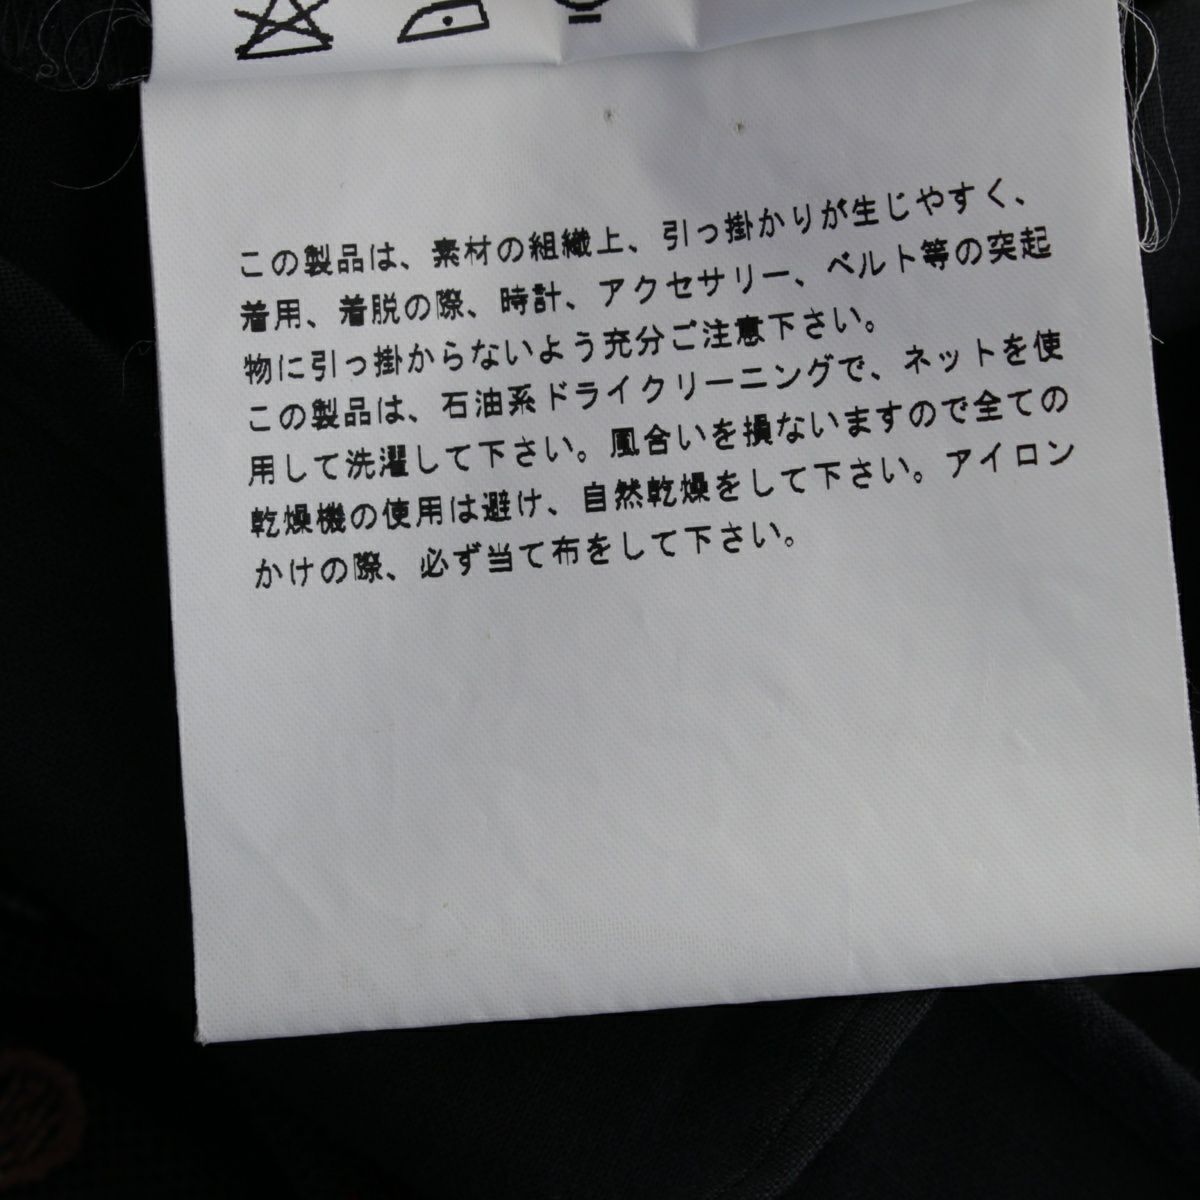 この製品は、素材の組織上、引っ掛かりが生じやすく、
着用、着脱の際、時計、アクセサリー、ベルト等の突起
物に引っ掛からないよう充分ご注意下さい。
この製品は、石油系ドライクリーニングで、ネットを使
用して洗濯して下さい。風合いを損ないますので全ての
乾燥機の使用は避け、自然乾燥をして下さい。アイロン
かけの際、必ず当て布をして下さい。